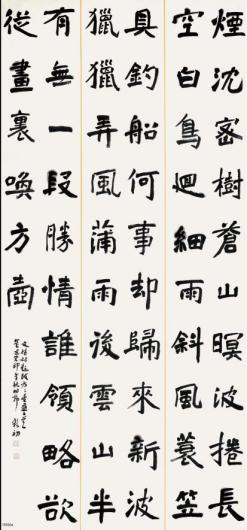 煙沈密樹蒼山暝波捲長
空白鳥迴細雨斜風蓑笠
具釣船何事却歸來新波
獵獵弄風蒲雨後雲山半
有無一段勝情誰領略欲
從畫裏喚方壺